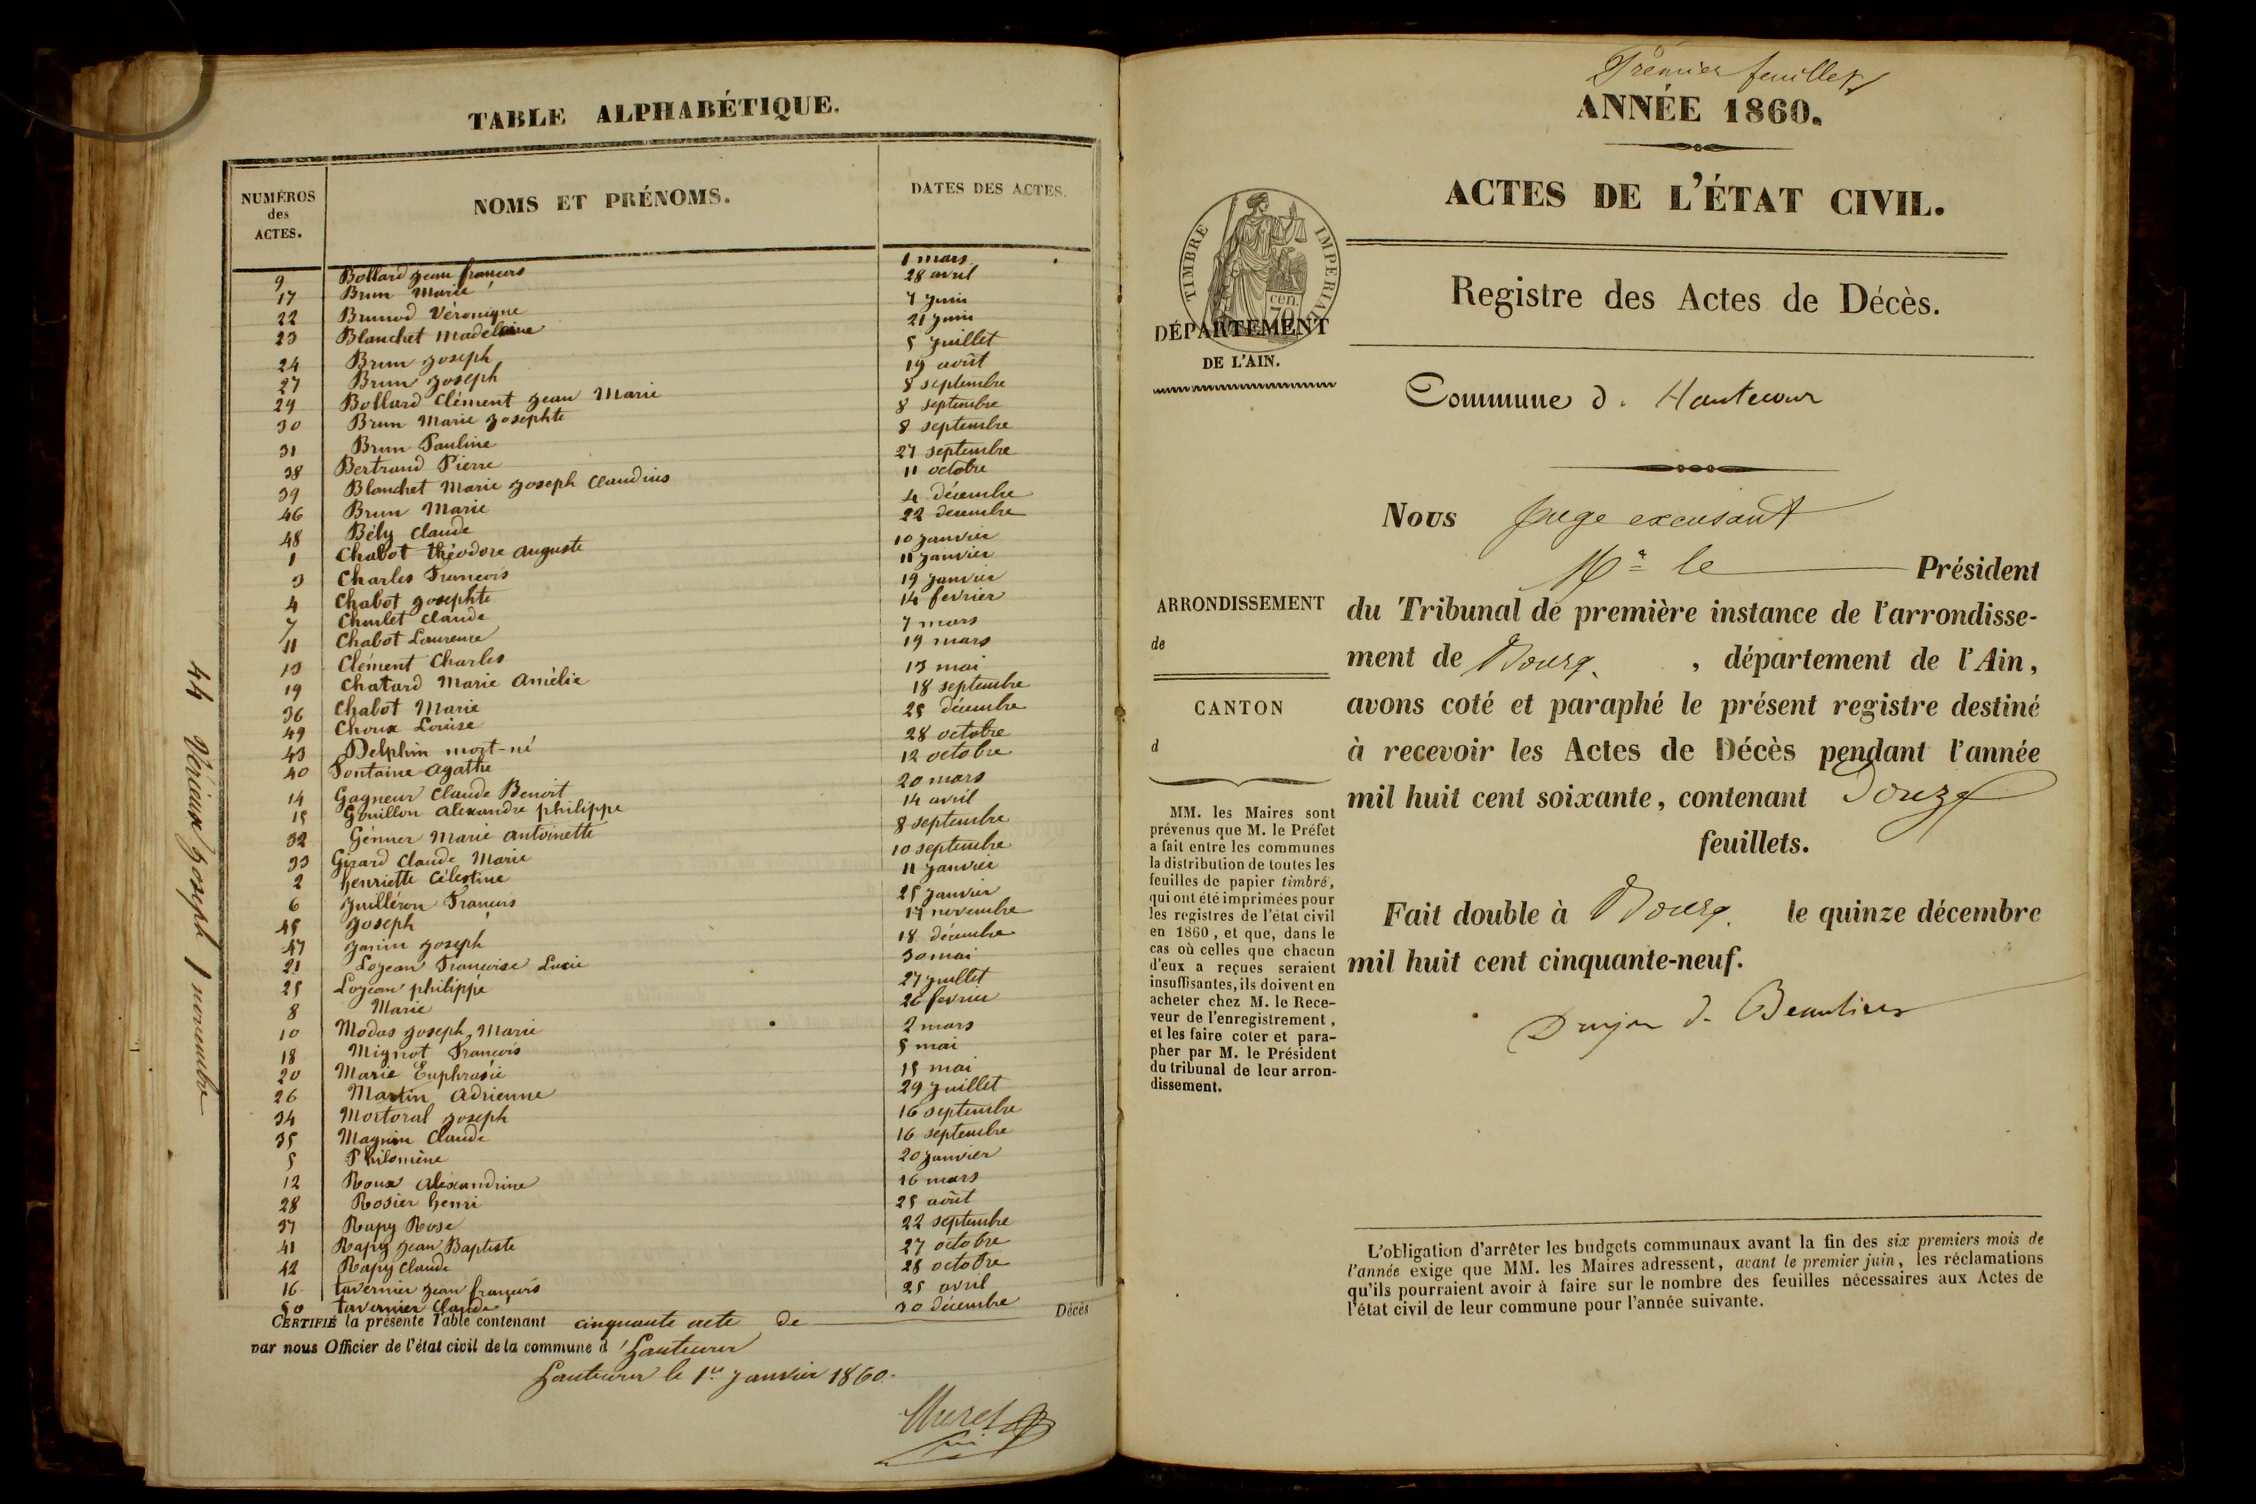 TABLE ALPHABÉTIQUE.
NUMÉROS des ACTES. NOMS ET PRÉNOMS. DATES DES ACTES.
9 Bollard Jean françois 1 mars
17 Brun Marie 28 avril
22 Brunod Véronique 7 juin
23 Blanchet Madeleine 21 juin
24 Brun Joseph 5 juillet
27 Brun Joseph 19 août
29 Bollard Clément Jean Marie 8 septembre
30 Brun Marie Josephte 8 septembre
31 Brun Pauline 8 septembre
38 Bertrand Pierre 27 septembre
39 Blanchet Marie Joseph Claudius 11 octobre
46 Brun Marie 4 décembre
48 Bély Claude 22 decembre
1 Chabot théodore auguste 10 janvier
3 Charles François 11 janvier
4 Chabot Josephte 19 janvier
7 Charlet Claude 14 fevrier
11 Chabot Laurence 7 mars
13 Clément Charles 19 mars
19 Chatard Marie Amélie 13 mai
36 Chabot Marie 18 septembre
49 Choux Louise 25 décembre
43 Delphin mort-né 28 octobre
40 Fontaine agathe 12 octobre
14 Gagneur Claude Benoit 20 mars
15 Gouillon alexandre philippe 14 avril
32 Génner Marie antoinette 8 septembre
33 Girard Claude Marie 10 septembre
2 henriette Célestine 11 janvier
6 Juilléron François 25 janvier
45 Joseph 17 novembre
47 Janin Joseph 18 décembre
21 Lojean Françoise Lucie 30 mai
25 Lojean philippe 27 juillet
8 Marie 26 fevrier
10 Modas Joseph Marie 2 mars
18 Mignot François 5 mai
20 Marie Euphrasie 15 mai
26 Martin Adrienne 29 juillet
34 Mortoral Joseph 16 septembre
35 Magnin Claude 16 septembre
5 Philomène 20 janvier
12 Roux Alexandrine 16 mars
28 Rosier henri 25 août
37 Rapy Rose 22 septembre
41 Rapy Jean Baptiste 27 octobre
42 Rapy Claude 28 octobre
16 tavernier Jean françois 25 avril
50 tavernier Claude 30 décembre
44 Vérioux Joseph 1 novembre
CERTIFIÉ la présente Table contenant cinquante acte de Décès
par nous Officier de l'état civil de la commune d'hautecour
hautecour le 1er Janvier 1860.
Muret
Premier feuillet
ANNÉE 1860.
ACTES DE L'ÉTAT CIVIL.
TIMBRE IMPERIAL
cen. 70
DÉPARTEMENT
DE L'AIN.
Registre des Actes de Décès.
Commune d. Hautecour
Nous Juge excusant
Mr le Président
du Tribunal de première instance de l'arrondisse-
ment de Bourg. , département de l'Ain,
avons coté et paraphé le présent registre destiné
à recevoir les Actes de Décès pendant l'année
mil huit cent soixante, contenant Douze
feuillets.
Fait double à Bourg. le quinze décembre
mil huit cent cinquante-neuf.
Dujon d. Beaulieu
ARRONDISSEMENT
de
CANTON
d
MM. les Maires sont
prévenus que M. le Préfet
a fait entre les communes
la distribution de toutes les
feuilles de papier timbré,
qui ont été imprimées pour
les registres de l'état civil
en 1860, et que, dans le
cas où celles que chacun
d'eux a reçues seraient
insuffisantes, ils doivent en
acheter chez M. le Rece-
veur de l'enregistrement,
et les faire coter et para-
pher par M. le Président
du tribunal de leur arron-
dissement.
L'obligation d'arrêter les budgets communaux avant la fin des six premiers mois de
l'année exige que MM. les Maires adressent, avant le premier juin, les réclamations
qu'ils pourraient avoir à faire sur le nombre des feuilles nécessaires aux Actes de
l'état civil de leur commune pour l'année suivante.